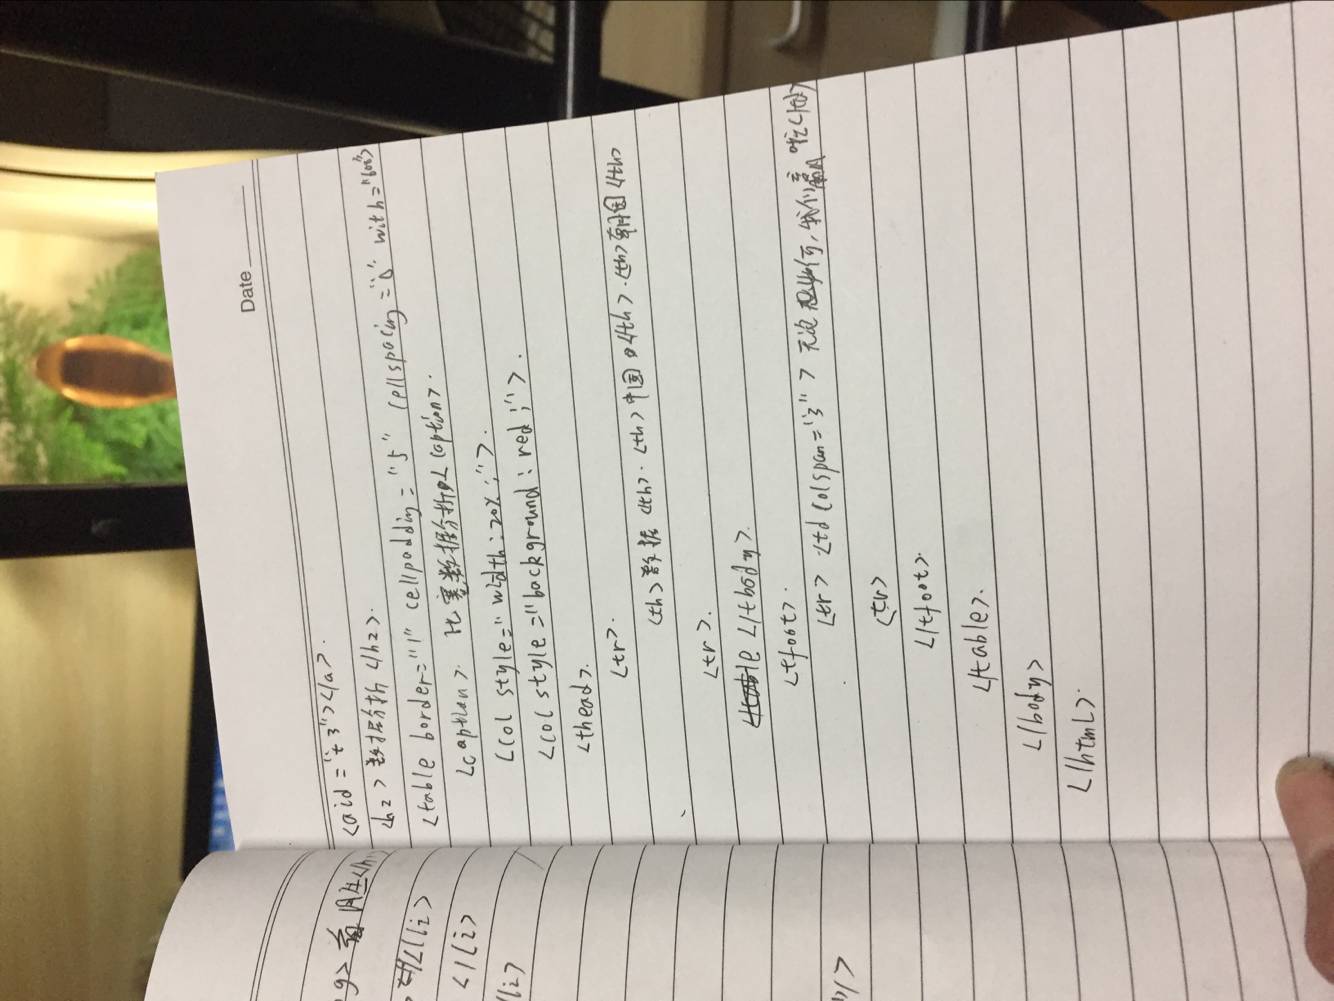 Date
g> 有 月生</h
<a id="t3"></a>.
<h2> 数据分析 </h2>.
</li>
<table border="1" cellpaddiy="5" cellspaciy="0" with="600">
</li>
<caption>. 比赛数据分析< caption>.
li>
<col style="width:20%;">.
<col style="background:red;">.
<thead>.
<tr>.
<th>数据<th>.<th>中国</th>.<th>韩国</th>
<tr>.
</tbody>.
<tfoot>.
<tr> <td colspan="3"> 无论如何,我们 </td>
"/>
<tr>
</tfoot>.
</table>.
</body>
</html>.